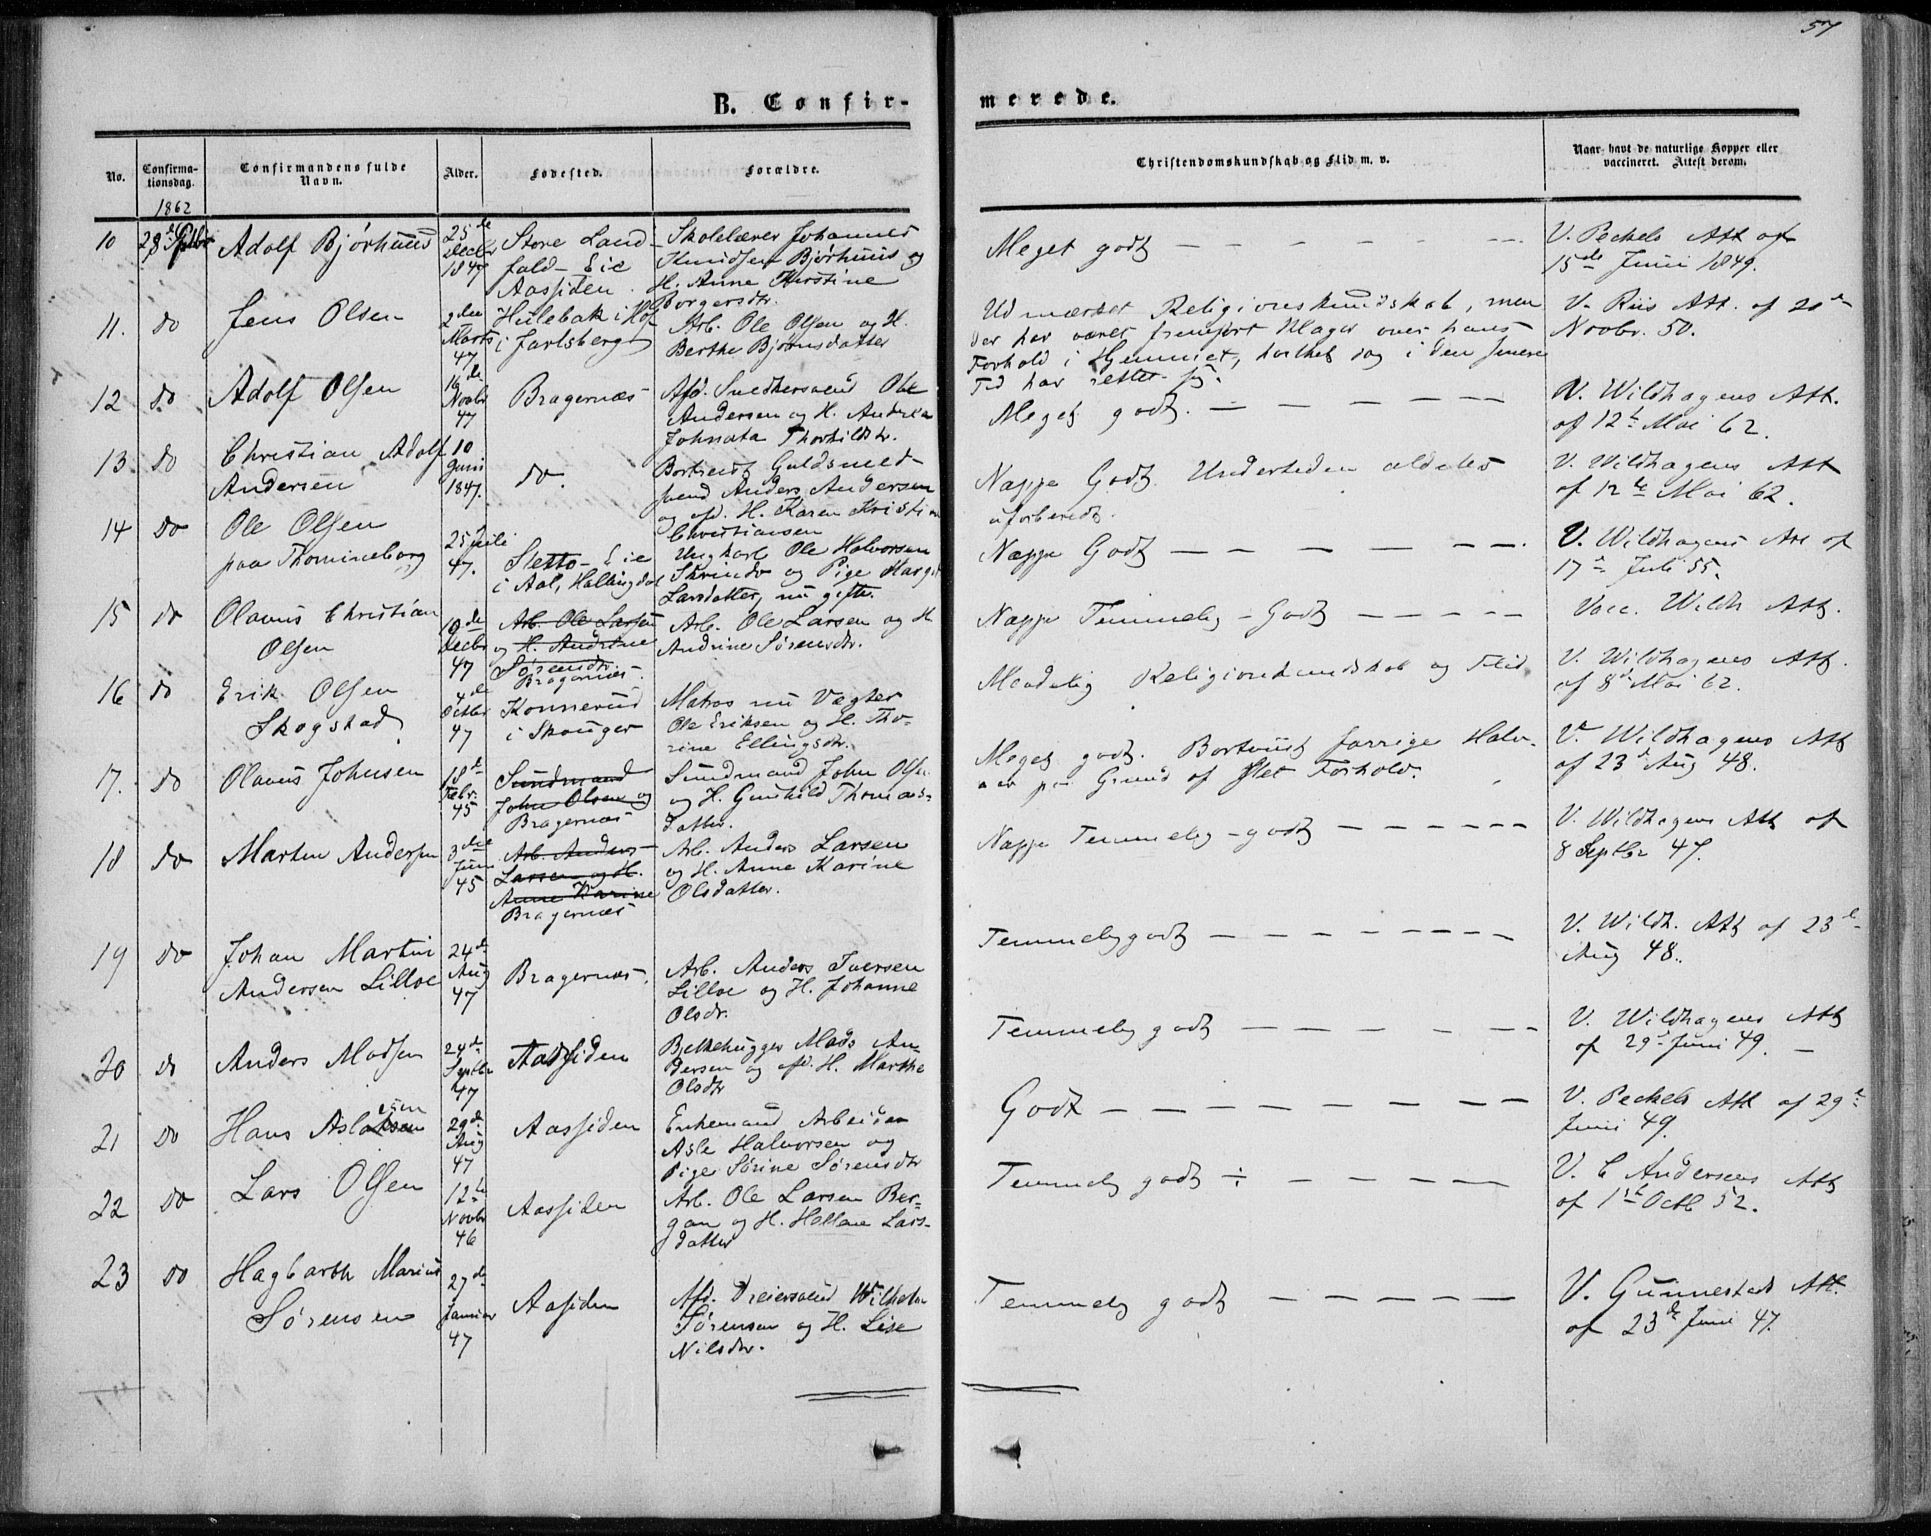 57
B. Confir-
merede.
No.
Confirma-
tionsdag.
Confirmandens fulde
Navn.
Alder.
Fødested.
Forældre.
Christendomskundskab og Flid m. v.
Naar havt de naturlige Kopper eller
vaccineret. Attest derom.
1862
10 28de Septbr Adolf Bjørhuus
25de
Decbr
1847
Store Land-
fald-Eie
Aassiden.
Skolelærer Johannes
Knudsen Bjørhuus og
H. Anne Kirstine
Borgersdr.
Meget godt — — — — —
V. Peckels Att af
15de Juni 1849.
11. do Jens Olsen
2den
Marts
47
Hulebak i Hof
i Jarlsberg
Arb. Ole Olsen og H.
Berthe Bjørnsdatter
Udmærket Religionskundskab, men
der har været fremført Klager over hans
Forhold i Hjemmet, hvilket dog i den senere
Tid har rettet sig.
V. Riis Att. af 20de
Novbr. 50.
12 do. Adolf Olsen
16de
Novbr
47
Bragernæs
Afd. Snedkersvend Ole
Andersen og H. Andrea
Johnata Thorkildsdr.
Meget godt. — — — — —
V. Wildhagens Att.
af 12te Mai 62.
13. do Christian Adolf
Andersen
10
Juni
1847.
do.
Bortreist Guldsmed-
svend Anders Andersen
og afd. H. Karen Kristine
Christiansen
Neppe Godt. Undertiden aldeles
uforberedt.
V. Wildhagens Att
af 12te Mai 62.
14 do Ole Olsen
paa Thomineborg
25 Juli
47.
Sletto-Eie
i Aal, Hallingdal
Ungkarl Ole Halvorsen
Skrinde og Pige Margit
Larsdatter, nu gifte.
Neppe Godt — — — — — —.
V. Wildhagens Att af
17de Juli 55.
15 do Olaus Christian
Olsen
10de
Decbr
47
Arb. Ole Larsen
og H. Andrine
Sørensdtr.
Bragernæs.
Arb. Ole Larsen og H.
Andrine Sørensdtr.
Neppe Temmelig-Godt — — — —
Vacc. Wildh Att.
16 do Erik Olsen
Skogstad
4de
Octbr
47
Konnerud
i Skouger
Matros nu Vægter
Ole Eriksen og H. Tho-
rine Ellingsdtr.
Maadelig Religionskundskab og Flid
V. Wildhagens Att.
af 8de Mai 62.
17. do Olaus Johnsen
18de
Febr.
45
Sundmand
John Olsen og
Bragernæs
Sundmand John Olsen
og H. Gunhild Thomas-
datter.
Meget godt. Bortviist forrige Halv-
aar paa Grund af slet Forhold.
V. Wildhagens Att
af 23de Aug 48.
18 do Marten Andersen
3die
Juni
45
Arb. Anders
Larsen og H.
Anne Karine
Bragernæs
Arb. Anders Larsen
og H. Anne Karine
Olsdatter.
Neppe Temmelig-godt — — — — —
V. Wildhagens Att af
8 Septbr 47.
19 do Johan Martin
Andersen Lilloe
24de
Aug
47
Bragernæs.
Arb. Anders Iversen
Lilloe og H. Johanne
Olsdr.
Temmelig godt — — — — — —
V. Wildh. Att af 23de
Aug 48.
20 do Anders Madsen
24de
Septbr
47
Aassiden
Bjelkehugger Mads An-
dersen og afd. H. Marthe
Olsdtr
Temmelig godt — — — — — —
V. Wildhagens Att
af 29de Juni 49. —
21 do Hans Aslaksen
esen
29de
Aug
47
Aassiden
Enkemand Arbeider
Asle Halvorsen og
Pige Sørine Sørensdtr
Godt — — — — — — —
V. Peckels Att af 29de
Juni 49.
22 do Lars Olsen
12te
Novbr
46
Aassiden
Arb. Ole Larsen Ber-
gan og H. Hellene Lars-
datter
Temmelig godt ÷ — — — — —
V. C Andersens Att
af 1ste Octb 52.
23 do Hagbarth Marius
Sørensen
27de
Januar
47
Aasiden
Afd. Dreiersvend Wilhelm
Sørensen og H. Lise
Nilsdtr.
Temmelig godt — — — — — —
V. Gunnestads Att.
af 23de Juni 47.